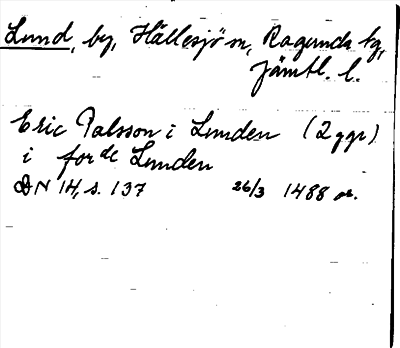 Lund, by, Hällesjö sn, Ragunda tg,
Jämtl. l.
Eric Palsson i Lunden (2 ggr)
i forde Lunden
DN 14, s. 137 26/3 1488 or.